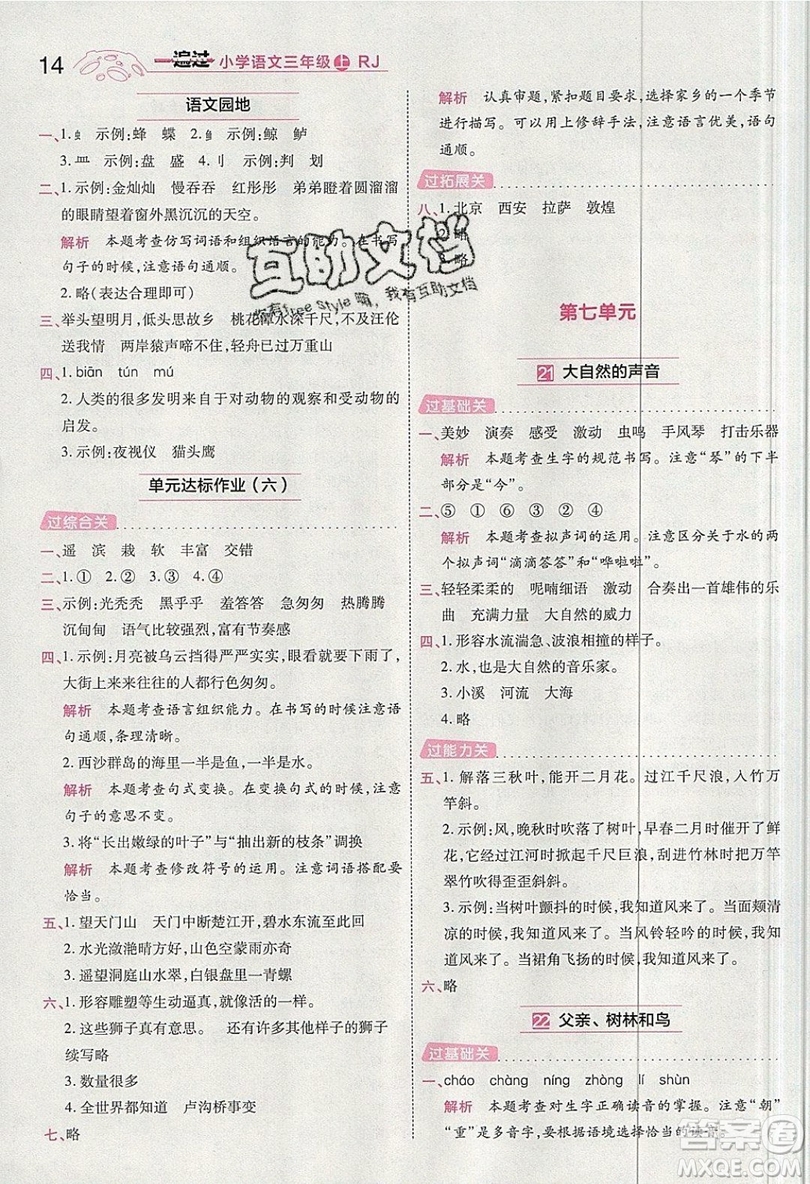 14
一遍过 小学语文三年级 上 RJ
语文园地
一、1.虫 示例:蜂 蝶 2.鱼 示例:鲸 鲈
3.皿 示例:盘 盛 4.刂 示例:判 划
二、1.示例:金灿灿 慢吞吞 红彤彤 弟弟瞪着圆溜溜
的眼睛望着窗外黑沉沉的天空。
解析 本题考查仿写词语和组织语言的能力。在书写
句子的时候,注意语句通顺。
2.略(表达合理即可)
三、举头望明月,低头思故乡 桃花潭水深千尺,不及汪伦
送我情 两岸猿声啼不住,轻舟已过万重山
四、1.biān tún mú
2.人类的很多发明来自于对动物的观察和受动物的
启发。
3.示例:夜视仪 猫头鹰
单元达标作业(六)
过综合关
一、遥 滨 栽 软 丰富 交错
二、1.① 2.② 3.③ 4.④
三、示例:光秃秃 黑乎乎 羞答答 急匆匆 热腾腾
沉甸甸 语气比较强烈,富有节奏感
四、1.示例:月亮被乌云挡得严严实实,眼看就要下雨了,
大街上来来往往的人都行色匆匆。
解析 本题考查语言组织能力。在书写的时候注意语句
通顺、条理清晰。
2.西沙群岛的海里一半是鱼,一半是海水。
解析 本题考查句式变换。在变换句式的时候,注意
句子的意思不能改变。
3.将“长出嫩绿的叶子”与“抽出新的枝条”调换
解析 本题考查修改符号的运用。注意词语搭配要
恰当。
五、1.望天门山 天门中断楚江开,碧水东流至此回
2.水光潋滟晴方好 山色空蒙雨亦奇
3.遥望洞庭山水翠,白银盘里一青螺
六、1.形容雕塑等生动逼真,就像活的一样。
2.这些狮子真有意思。 它们有大有小。大的狮子
续写略
3.数量很多
4.全世界都知道 卢沟桥事变
七、略
解析 认真审题,紧扣题目要求,选择家乡的一个季节
进行描写。可以用上修辞手法,注意语言优美,语句
通顺。
过拓展关
八、1.北京 西安 拉萨 敦煌
略
互助文档
你有free Style 嘛,我有互助文档
第七单元
21 大自然的声音
过基础关
一、美妙 演奏 感受 激动 虫鸣 手风琴 打击乐器
解析 本题考查生字的规范书写。注意“琴”的下半
部分是“今”。
二、⑤ ① ⑥ ② ③ ④
解析 本题考查拟声词的运用。注意区分描写雨声的
两个拟声词“滴滴答答”和“哗啦啦”。
三、轻轻柔柔的 呢喃细语 激动 合奏出一首雄伟的乐
曲 充满力量 大自然的威力
四、1.形容水流湍急、波浪相撞的样子。
2.水,也是大自然的音乐家。
3.小溪 河流 大海
4.略
过能力关
五、1.解落三秋叶,能开二月花。过江千尺浪,入竹万
竿斜。
2.示例:风,晚秋时吹落了树叶,早春二月时吹开了鲜
花。它经过江河时掀起千尺巨浪,刮进竹林时把
翠竹吹得歪歪斜斜。
3.示例:当树叶颤抖的时候,我知道风来了。当我觉清
凉的时候,我知道风来了。当风铃轻吟的时候,我知
道风来了。当裙角飞扬的时候,我知道风来了。
六、略
22 父亲、树林和鸟
过基础关
一、cháo chàng níng zhòng lì shùn
解析 本题考查对生字正确读音的掌握。注意“朝”
“重”是多音字,要根据语境选择恰当的读音。
答案圈
MXQE.COM